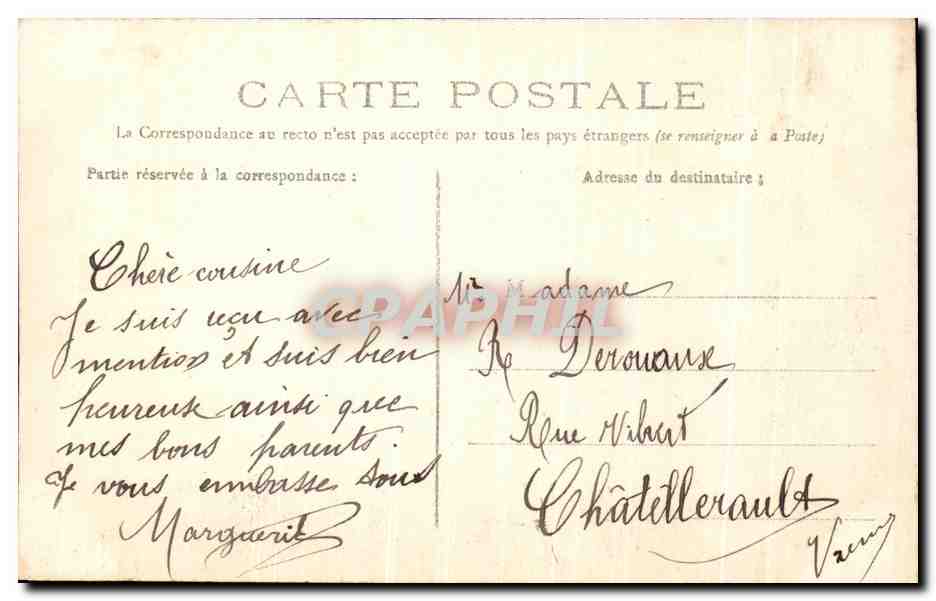 CARTE POSTALE
La Correspondance au recto n'est pas acceptée par tous les pays étrangers (se renseigner à a Poste)
Partie réservée à la correspondance :
Chère cousine
Je suis reçu avec
mention et suis bien
heureuse ainsi que
mes bons parents.
Je vous embasse tous
Marguerite
Adresse du destinataire :
Mr Madame
R Derouaux
Rue Vibert
Châtellerault
CPAPHIL